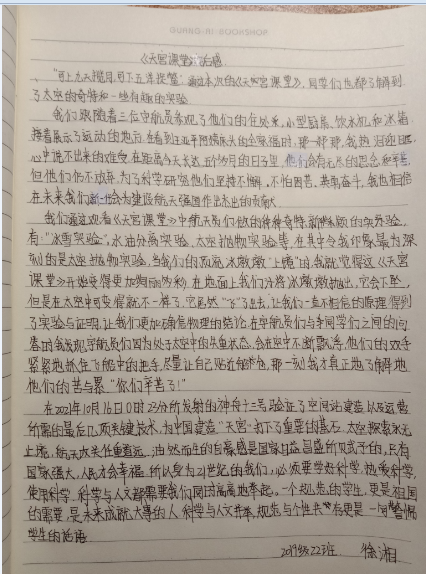 《天宫课堂》后感
"可上九天揽月,可下五洋捉鳖"通过本次的《天宫课堂》,同学们也都了解到
了太空的奇特和一些有趣的实验
我们跟随着三位宇航员参观了他们的住处,小型厨房、饮水机和冰箱
接着展示了运动的地方,在看到
心中说不出的难受,在距离今天长达 的日子里,他们会有无尽的思念和
但他们仍不放弃,为了科学研究他们坚持不懈,不怕困苦,其勇奋斗,我也相信
在未来我们新一代会为建设航天强国作出杰出的贡献
我们通过观看《天宫课堂》中航天员们做的种种奇特新颖的实验
有:"冰雪实验",水油分离实验、太空抛物实验等,在其中令我印象最为深
刻的是太空抛物实验,当我们的 冰墩墩"上墙"时,我就觉得这《天宫
课堂》开始变得更加绚丽 在地面上我们分将冰墩墩抛出,它会下坠,
但是在太空中可变得就不一样了,它竟然"飞"了出去,让我们一直不相信的原理得到
了实验与证明,让我们更加确信物理的结论,在宇航员们与多同学们之间的问
答时我发现宇航员们因为处于太空中的失重状态,会在空中不断飘荡,他们的双手
紧紧地抓住飞船中的把手,尽量让自己贴近 那一刻我才真正地了解地
他们的苦与累"你们辛苦了!"
在2021年10月16日0时23分所发射的神舟十三号验证了空间站建造以及运营
所需的最后几项关键技术,为中国建造"天宫"打下了重要的基石,太空探索永无
止境,航天水关任重道远,油然而生的自豪感是国家日益昌盛所赋予的,只有
国家强大,人民才会幸福,所以身为21世纪的我们,必须要学好科学,热爱科学,
使用科学,科学与人文都需要我们高高地奉起。一个规范的学生,更是祖国
的需要,是未来成就大事的人,科学与人文并举,规范与个性共 更是一句警惕
学生的话语
2019级22班 徐湘